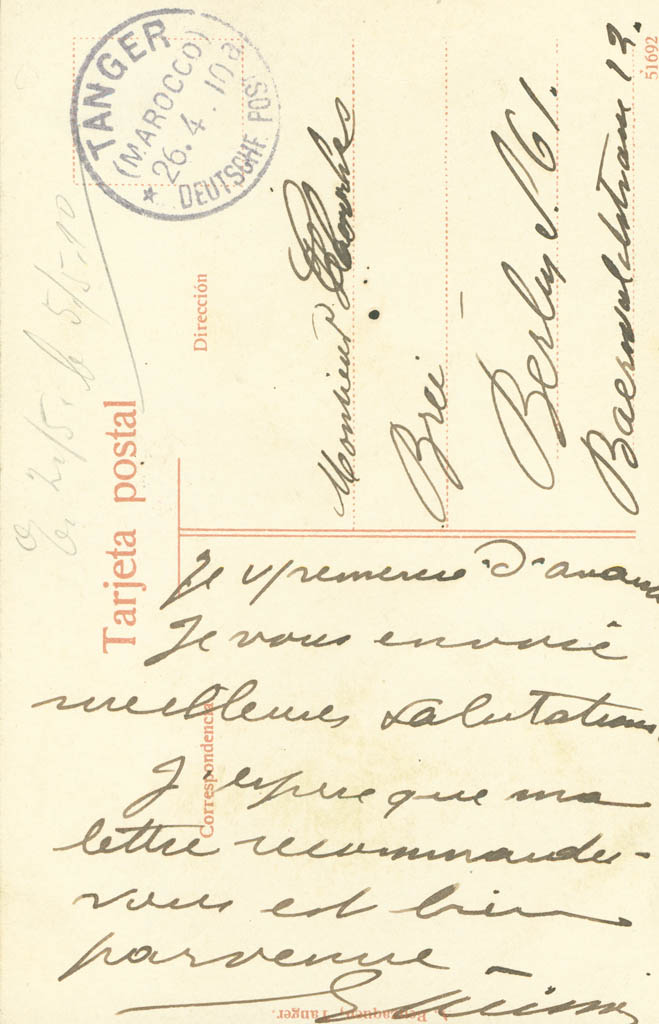 TANGER
(MAROCCO)
26.4.10 8
* DEUTSCHE POST
51692
Tarjeta postal
Dirección
Monsieur
Brei
Berlin S. 61.
Baerwaldstrasse 13.
Correspondencia
Je v/remercie d'avance
Je vous envoie
meilleures salutations
J'espère que ma
lettre recommandée
vous est bien
parvenue
Tanger.